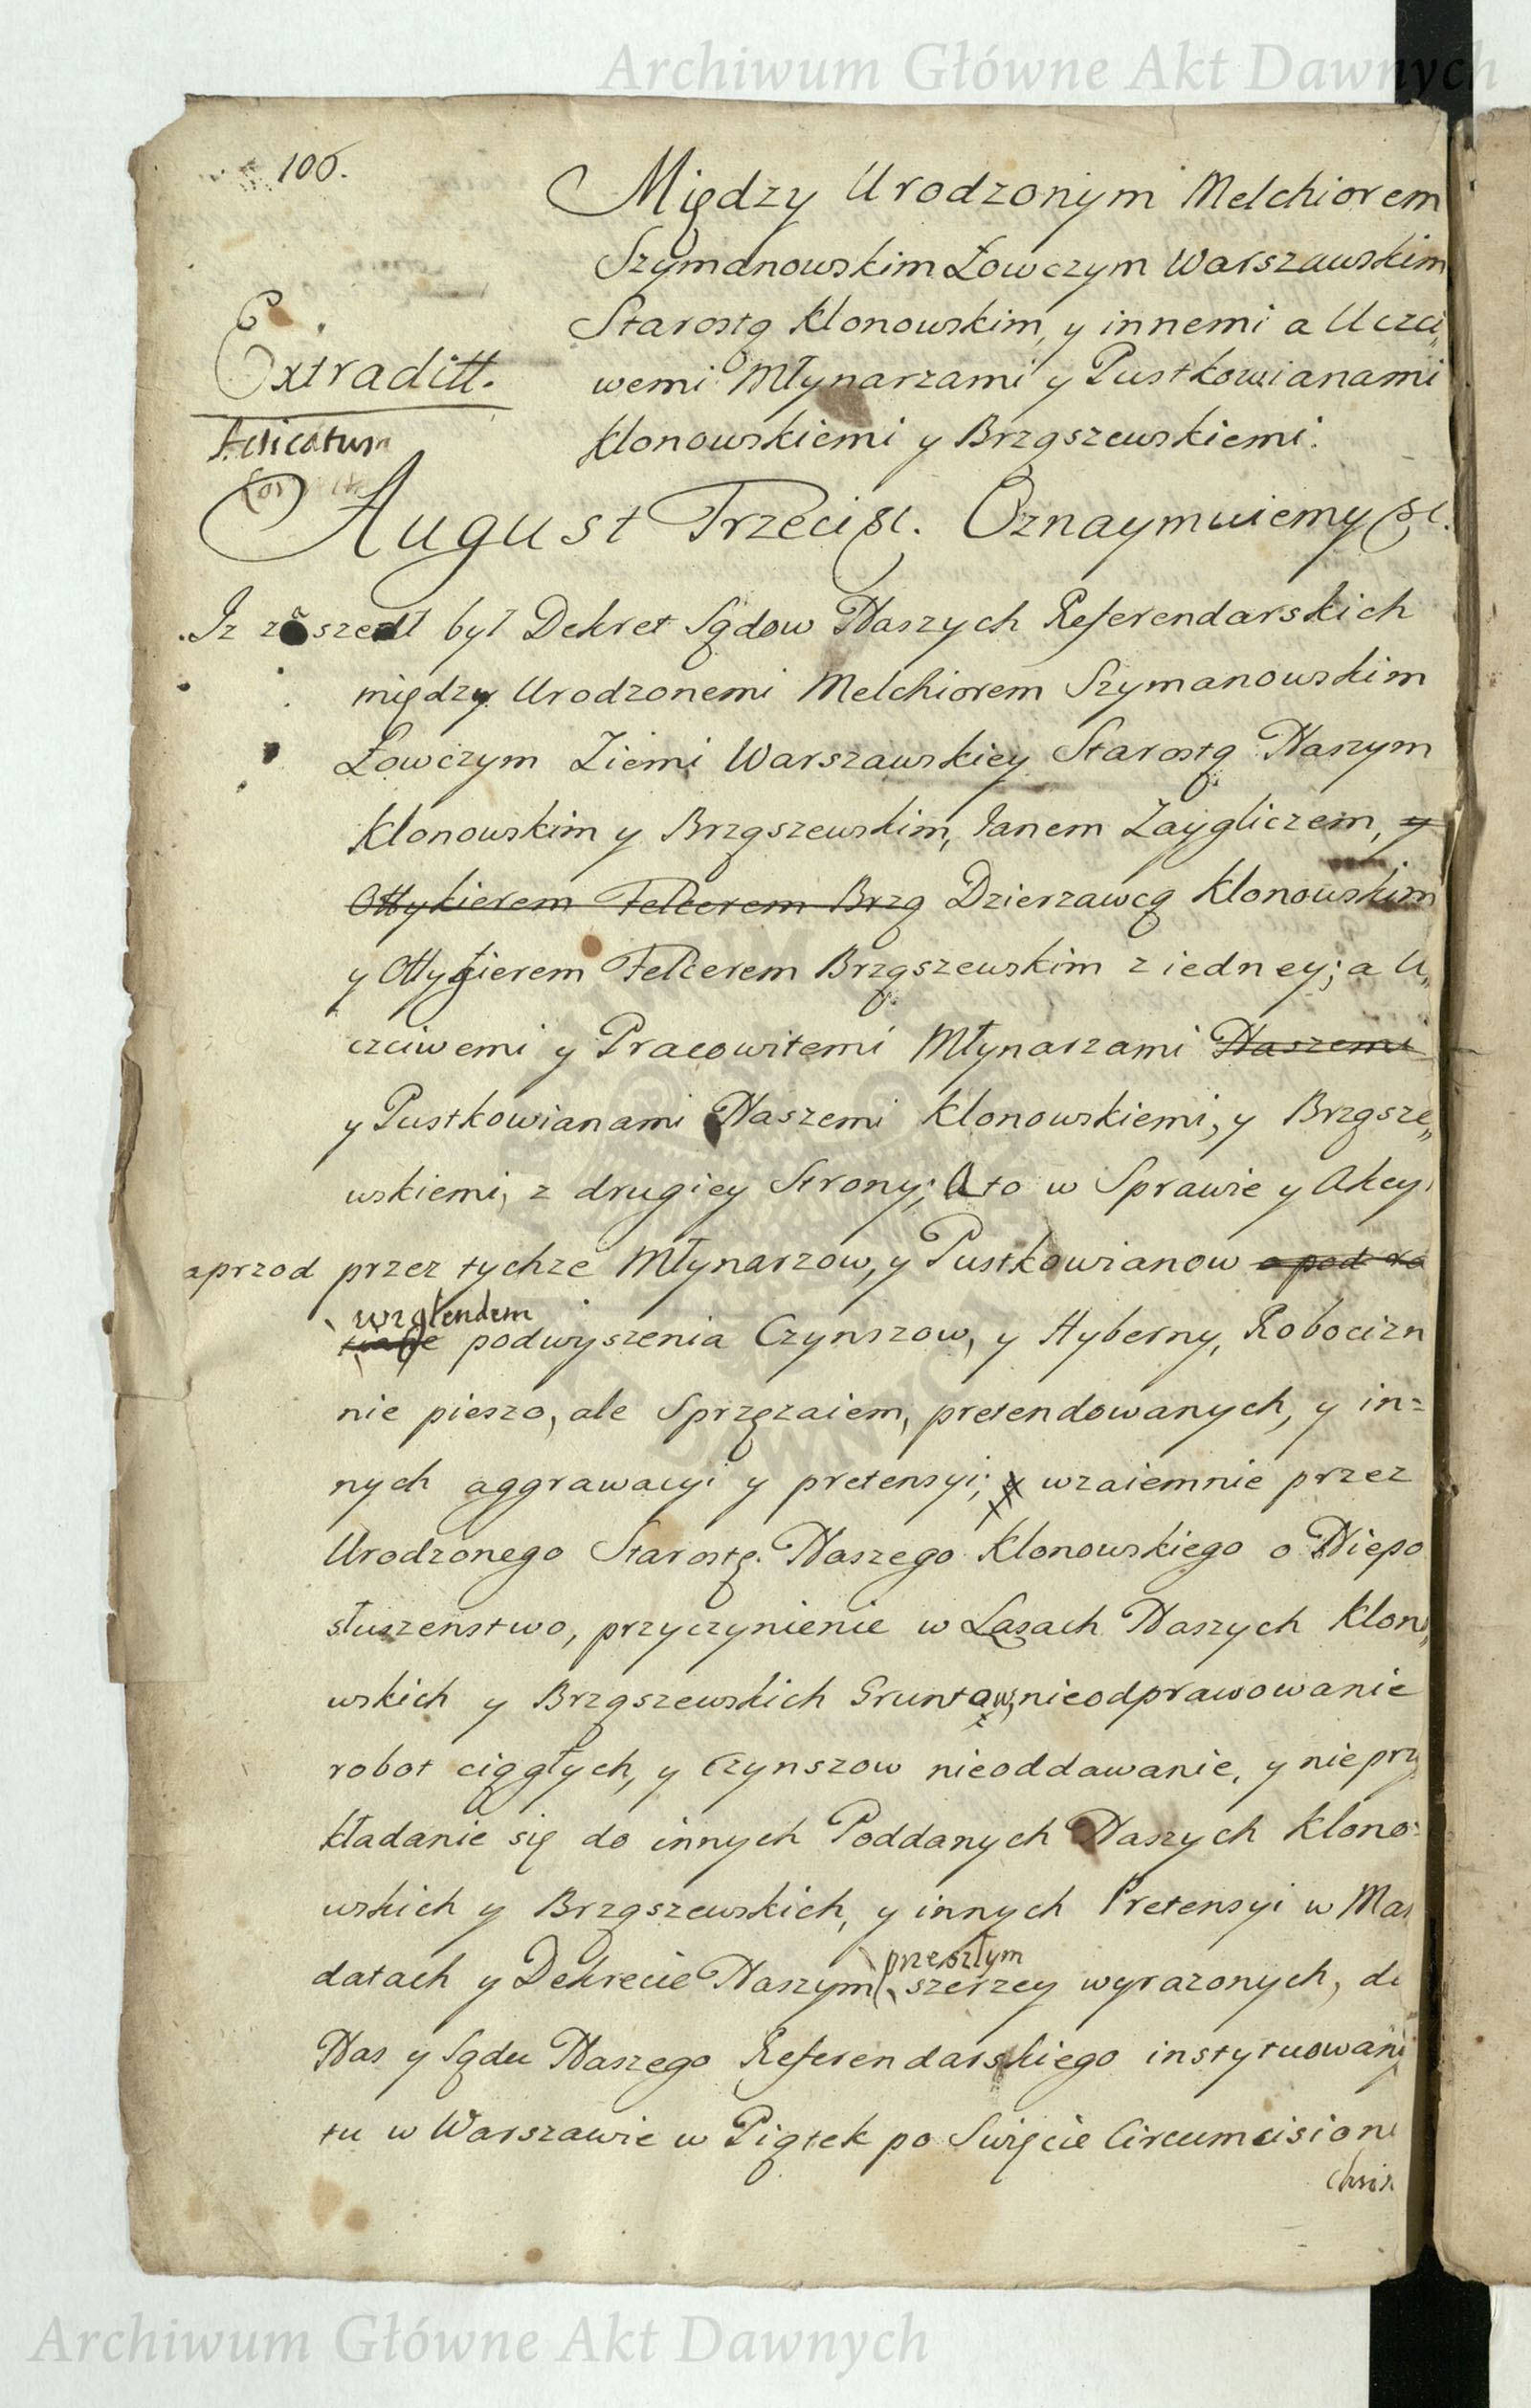 Archiwum Główne Akt Dawnych
106.
Między Urodzonym Melchiorem
Szymanowskim Łowczym Warszawskim
Starostą Klonowskim, y innemi a Uczci„
wemi Młynarzami y Pustkowianami
Klonowskiemi y Brząszewskiemi.
Extraditt.
August Trzeci &c. Oznaymuiemy &c.
Iz zaszedł był Dekret Sądow Naszych Referendarskich
między Urodzonemi Melchiorem Szymanowskim
Łowczym Ziemi Warszawskiey Starostą Naszym
Klonowskim y Brząszewskim, Janem Zaygliczem, y
Ottykierem Felcerem Brzą Dzierzawcą Klonowskim
y Ottykierem Felcerem Brząszewskim z iedney; a U„
czciwemi y Pracowitemi Młynarzami Naszemi
y Pustkowianami Naszemi Klonowskiemi, y Brząsze„
wskiemi, z drugiey Strony; A to w Sprawie y Akcyi
aprzod przez tychze Młynarzow, y Pustkowianow
względem
podwyszenia Czynszow, y Hyberny, Robocizn
nie pieszo, ale Sprzęzaiem, pretendowanych, y in=
nych aggrawacyi y pretensyi; y wzaiemnie przez
Urodzonego Starostę Naszego Klonowskiego o Niepo
słuszenstwo, przyczynienie w Lasach Naszych Klono„
wskich y Brząszewskich Gruntow, nieodprawowanie
robot ciągłych, y Czynszow nieoddawanie, y nieprzy
kładanie się do innych Poddanych Naszych Klono=
wskich y Brząszewskich, y innych Pretensyi w Man
przeszłym
datach y Dekrecie Naszym szerzey wyrazonych, do
Nas y Sądu Naszego Referendarskiego instytuowaney
tu w Warszawie w Piątek po Swięcie Circumcisionis
Chris
Archiwum Główne Akt Dawnych